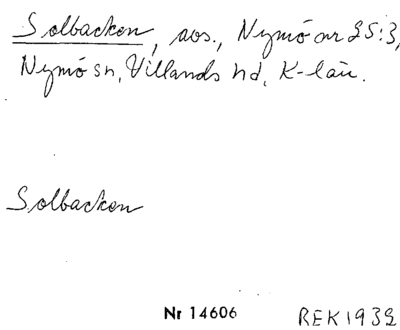 Solbacken, avs., Nymö nr 25:3,
Nymö sn, Villands hd, K-län.
Solbacken
Nr 14606
REK 1932